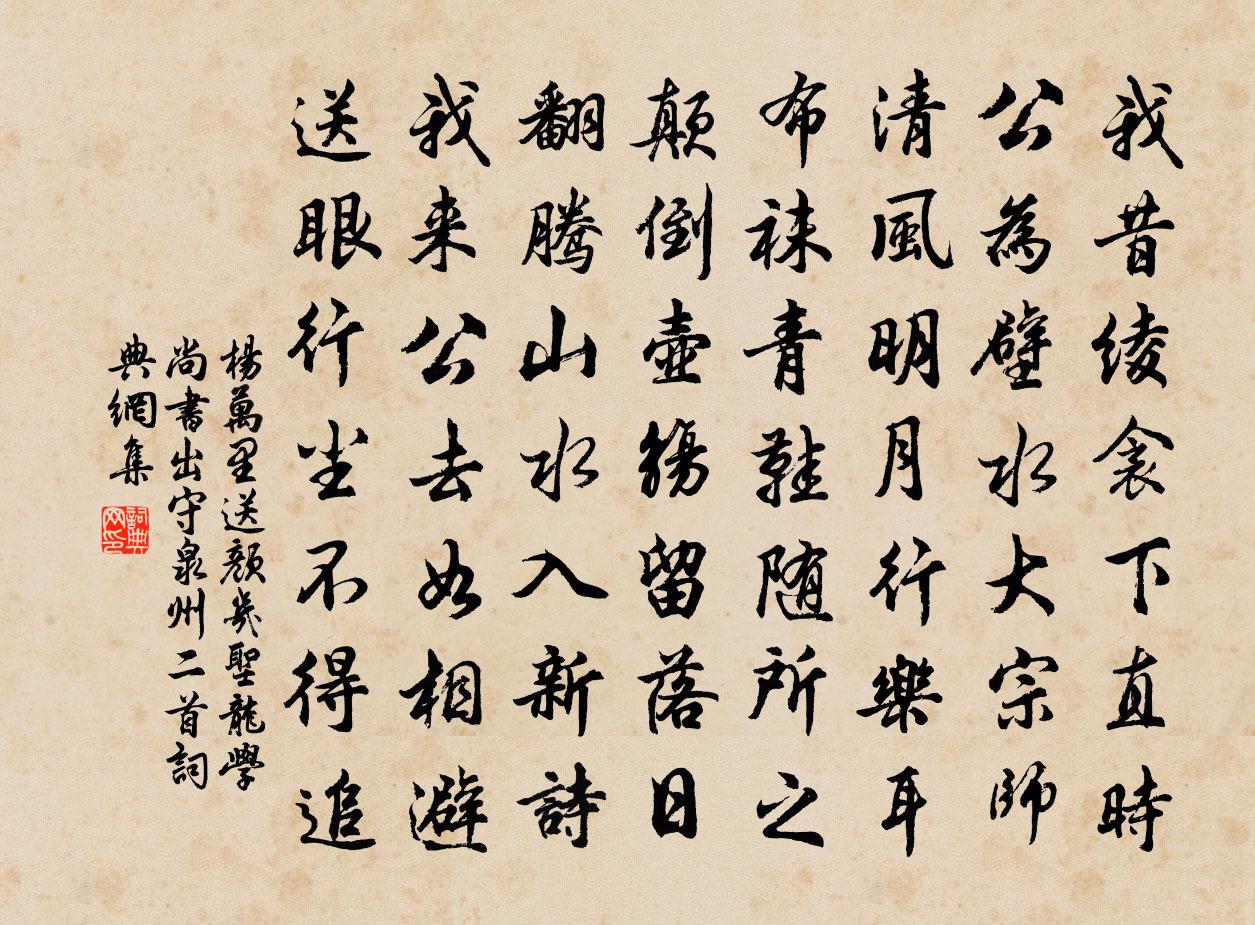 我昔绫衾下直時
公為璧水大宗師
清風明月行樂耳
布袜青鞋随所之
顛倒壺觴留落日
翻騰山水入新詩
我来公去如相避
送眼行尘不得追
楊萬里送顏幾聖龍學
尚書出守泉州二首詞
典網集
詞典网印